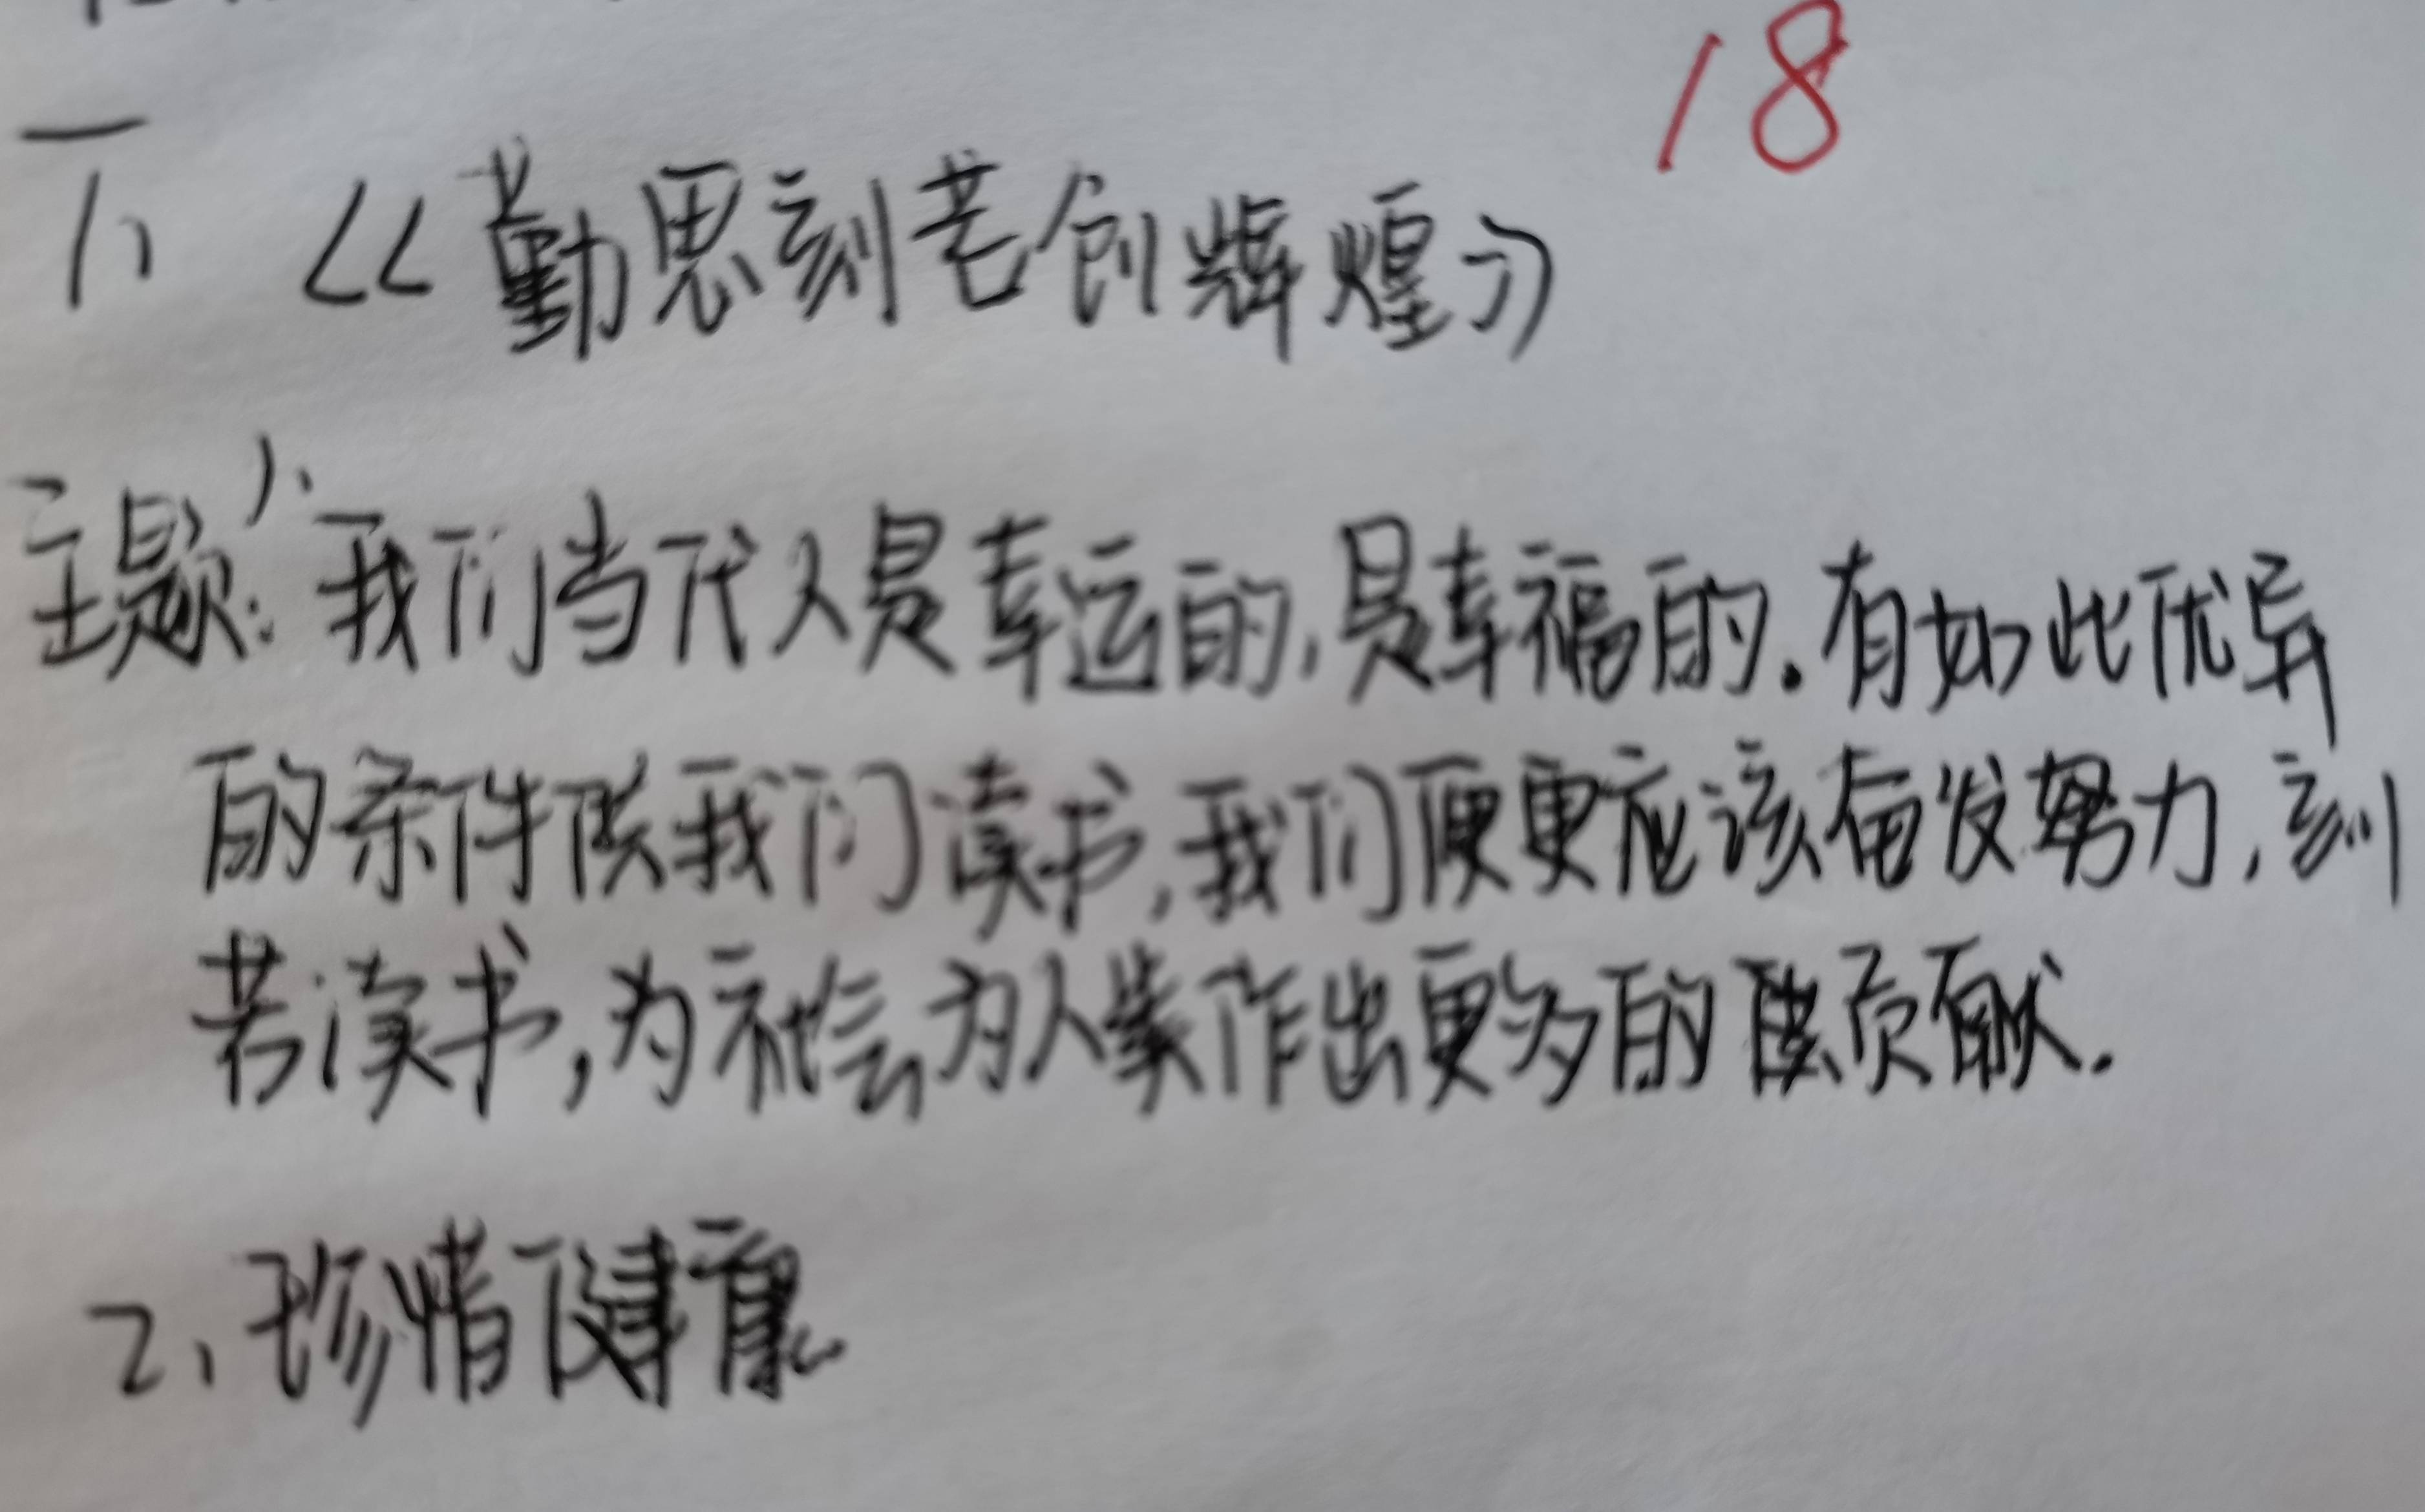 18
一
1、《勤思刻苦创辉煌》
主题:1、我们当代人是幸运的,是幸福的.有如此优异
的条件供我们读书,我们便更应该奋发努力,刻
苦读书,为社会为人类作出更多的贡献.
2、珍惜健康